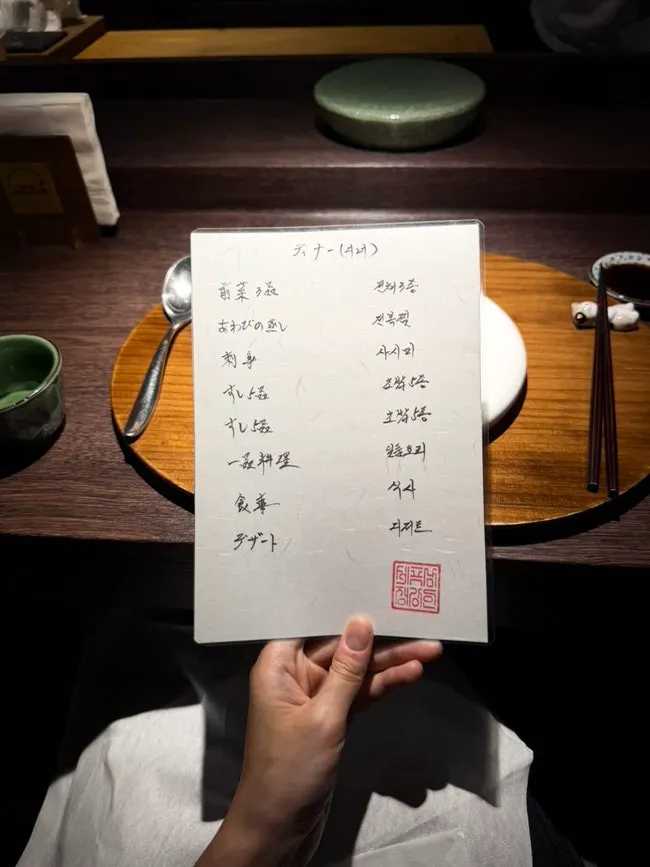 ディナー (디너)
前菜 3品 전채 3종
あわびの蒸し 전복찜
刺身 사시미
すし 5品 초밥 5종
すし 5品 초밥 5종
一品料理 일품요리
食事 식사
デザート 디저트